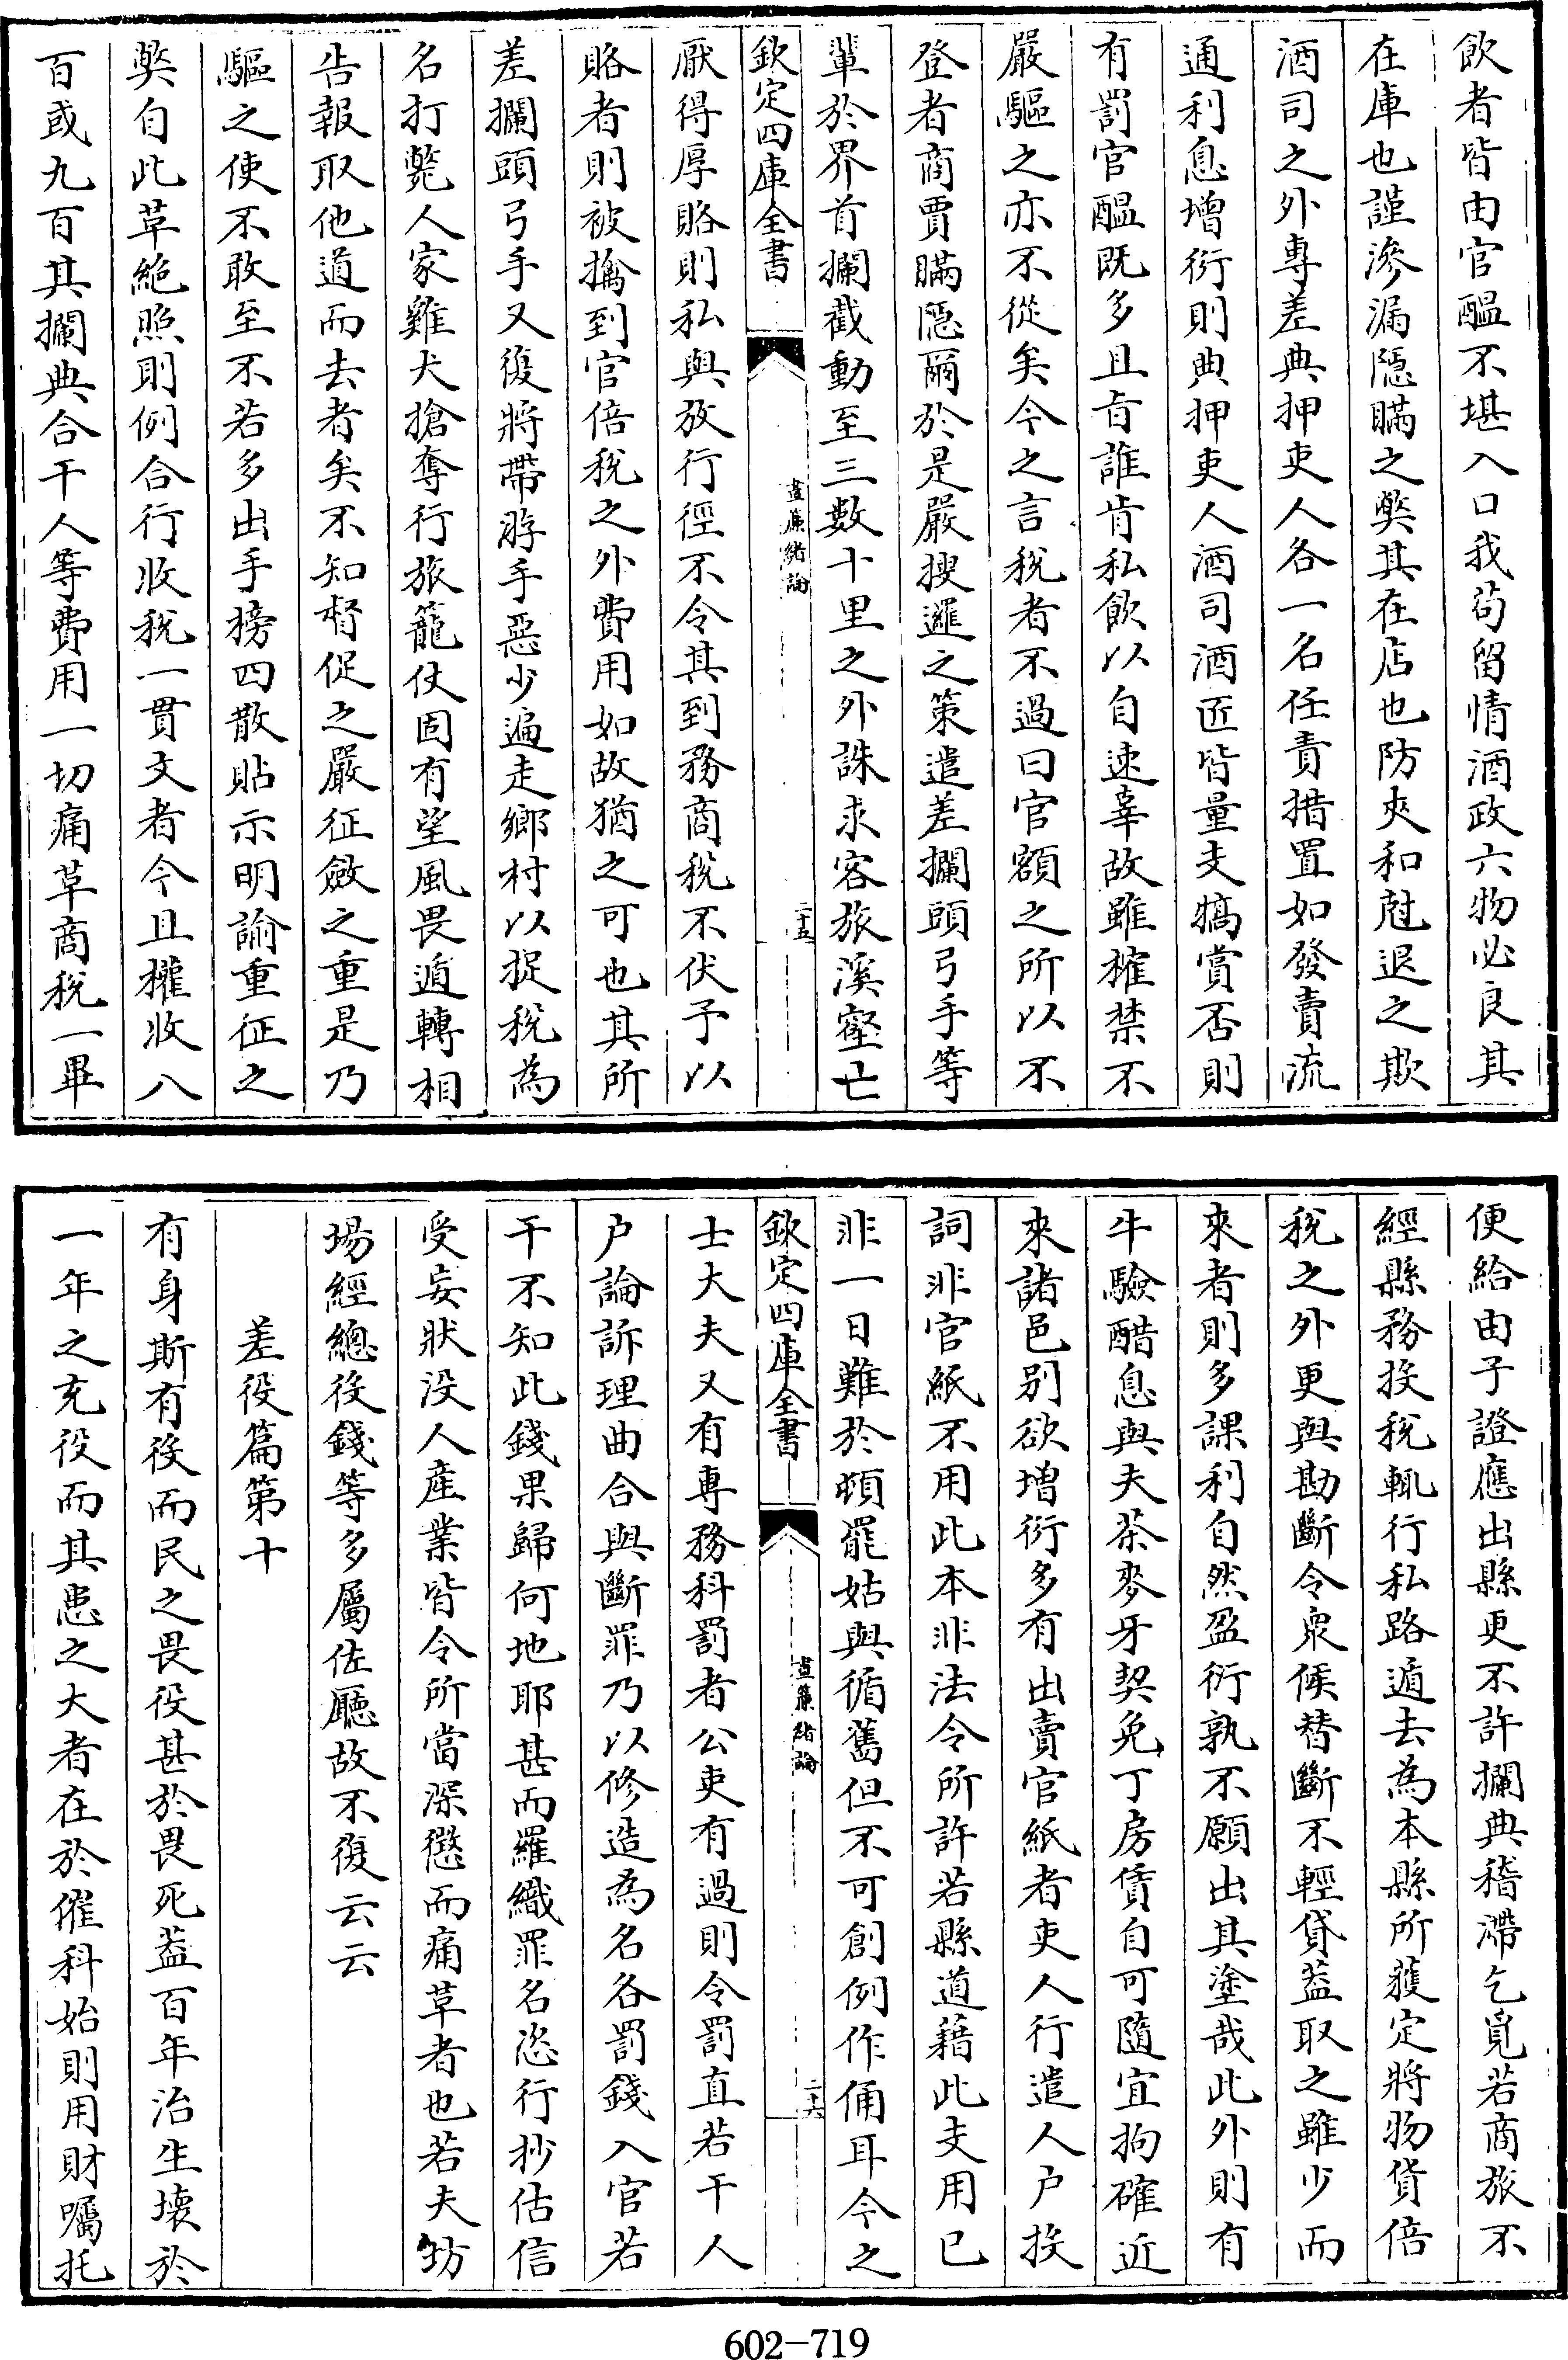 飲者皆由官醖不堪入口我苟留情酒政六物必良其
在庫也謹滲漏隱瞞之弊其在店也防夾和尅退之欺
酒司之外專差典押吏人各一名任責措置如發賣流
通利息增衍則典押吏人酒司酒匠皆量支犒賞否則
有罰官醖既多且㫖誰肯私飲以自速辜故雖榷禁不
嚴驅之亦不從矣今之言税者不過曰官額之所以不
登者商賈瞞隱爾於是嚴搜邏之策遣差攔頭弓手等
輩於界首攔截動至三數十里之外誅求客旅溪壑亡
欽定四庫全書
晝簾緒論
二十五
厭得厚賂則私與放行徑不令其到務商税不伏予以
賂者則被擒到官倍税之外費用如故猶之可也其所
差攔頭弓手又復將帶游手惡少遍走鄉村以捉税為
名打斃人家雞犬搶奪行旅籠仗固有望風畏遁轉相
告報取他道而去者矣不知督促之嚴征斂之重是乃
驅之使不敢至不若多出手榜四散貼示明諭重征之
弊自此革絶照則例合行收税一貫文者今且權收八
百或九百其攔典合干人等費用一切痛革商税一畢
便給由子證應出縣更不許攔典稽滯乞覓若商旅不
經縣務投税輒行私路遁去為本縣所獲定將物貨倍
税之外更與勘斷令衆候替斷不輕貸葢取之雖少而
來者則多課利自然盈衍孰不願出其塗哉此外則有
牛驗醋息與夫茶麥牙契免丁房賃自可隨宜拘確近
來諸邑别欲增衍多有出賣官紙者吏人行遣人户投
詞非官紙不用此本非法令所許若縣道藉此支用已
非一日難於頓罷姑與循舊但不可創例作俑耳今之
欽定四庫全書
晝簾緒論
二十六
士大夫又有專務科罰者公吏有過則令罰直若干人
户論訴理曲合與斷罪乃以修造為名各罰錢入官若
干不知此錢果歸何地耶甚而羅織罪名恣行抄估信
受妄狀没人産業皆令所當深懲而痛革者也若夫坊
場經總役錢等多屬佐廳故不復云云
差役篇第十
有身斯有役而民之畏役甚於畏死葢百年治生壞於
一年之充役而其患之大者在於催科始則用財囑托
602-719